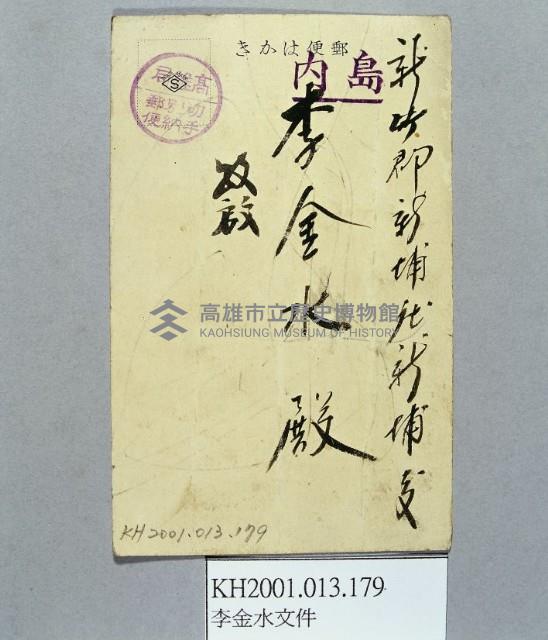 郵便はかき
島内
高雄局
切手別納郵便
新竹郡新埔庄新埔
李金水殿
敬啟
高雄市立歷史博物館
KAOHSIUNG MUSEUM OF HISTORY
KH2001.013.179
KH2001.013.179
李金水文件